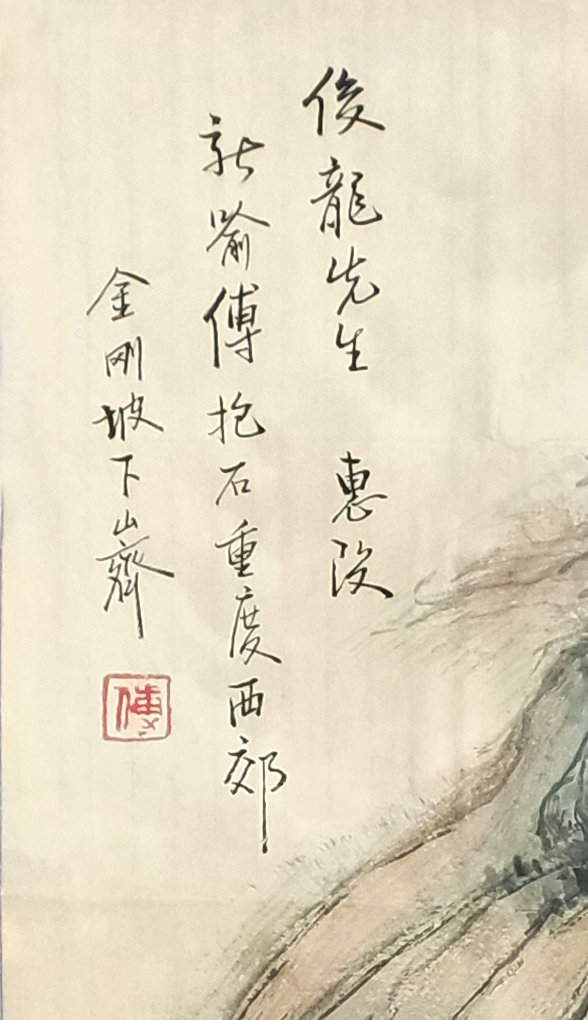 俊龍先生 惠段
新喻傅抱石重慶西郊
金刚坡下山齋
傅